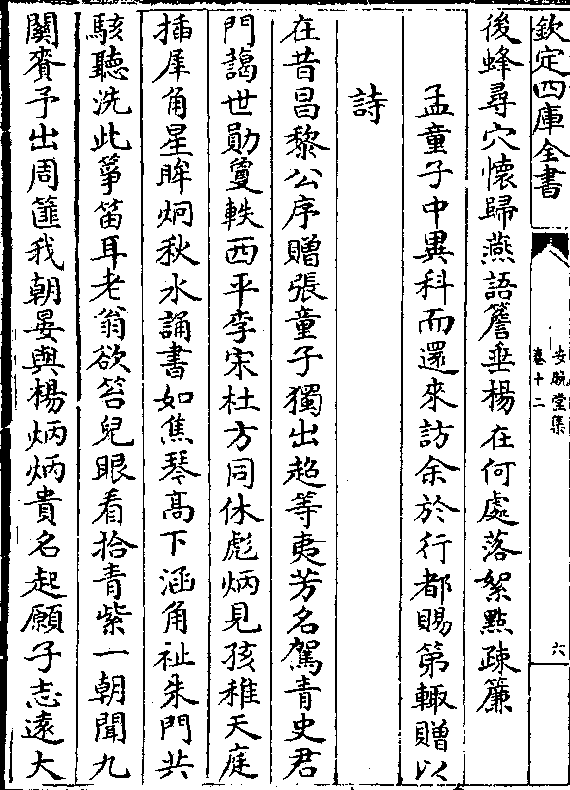 欽定四庫全書
安晩堂集
卷十二
六
後蜂尋穴懷歸燕語簷垂楊在何處落絮㸃疎簾
孟童子中異科而還來訪余於行都賜第輙贈以
詩
在昔昌黎公序贈張童子獨出超等夷芳名駕青史君
門藹世勛䕫軼西平李宋杜方同休彪炳見孩稚天庭
插犀角星眸炯秋水誦書如焦琴髙下涵角祉朱門共
駭聽洗此箏笛耳老翁欲笞兒眼看拾青紫一朝聞九
關賚予出周篚我朝晏與楊炳炳貴名起願子志逺大